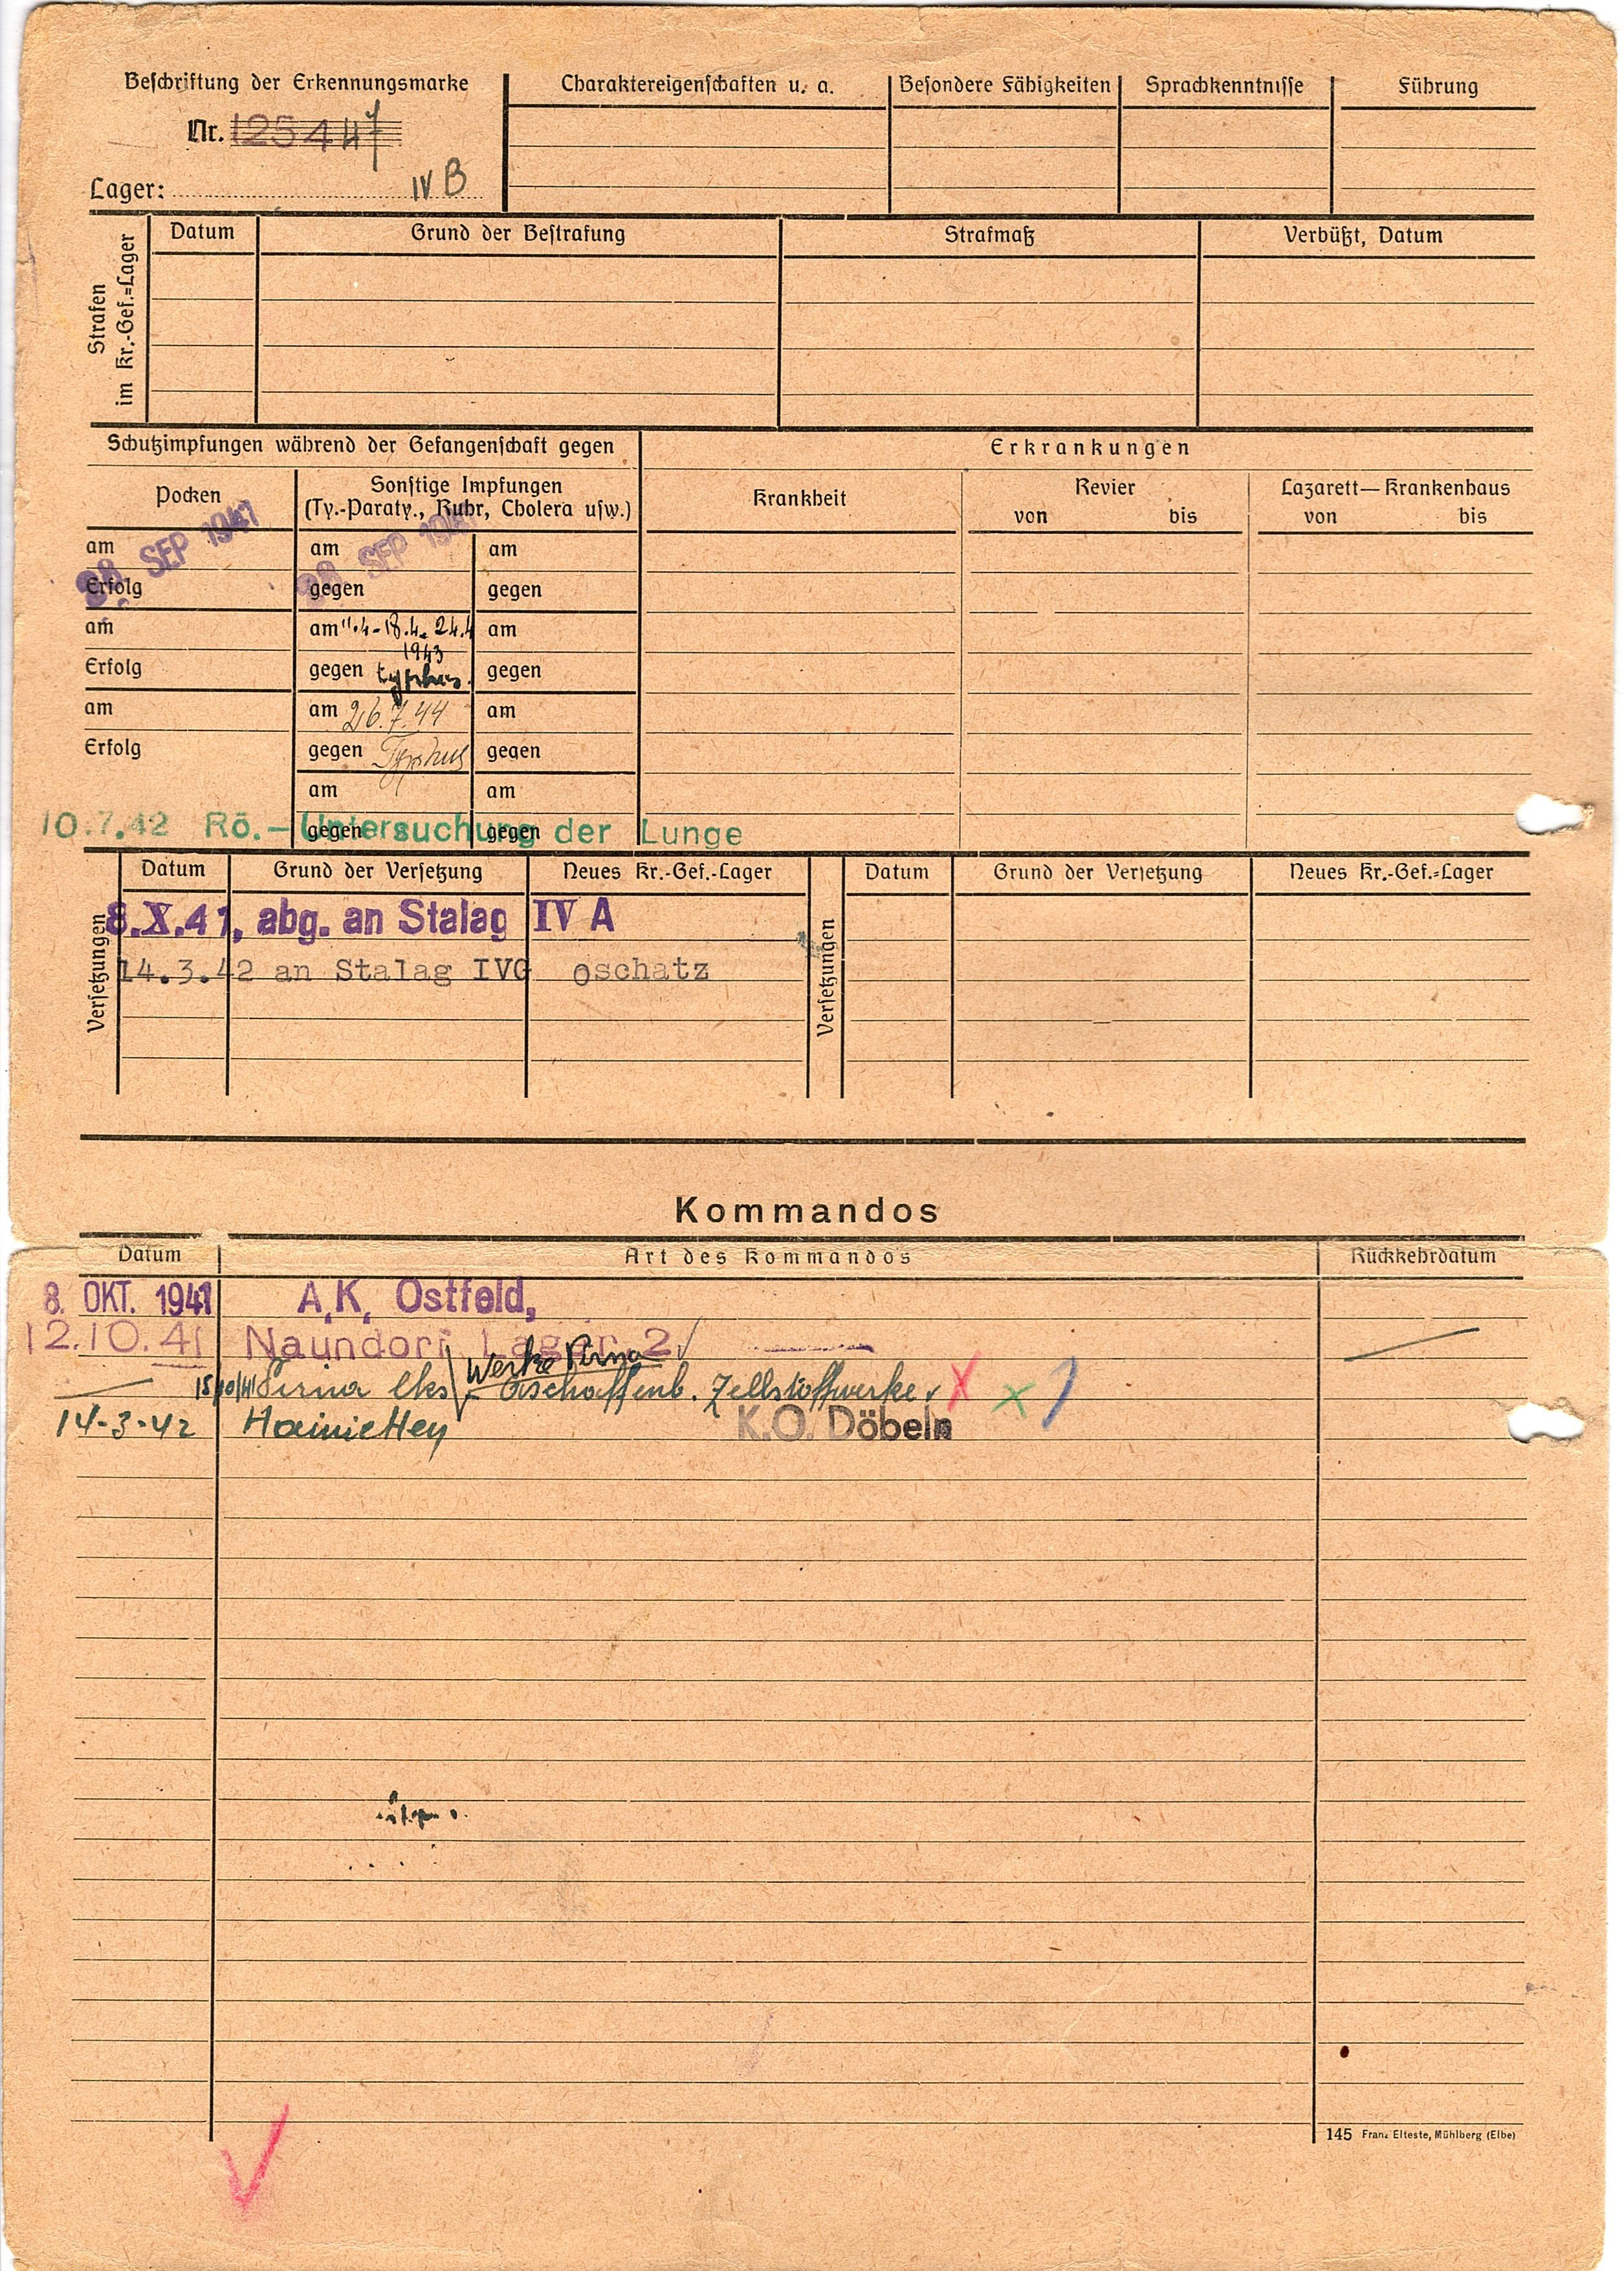 Beschriftung der Erkennungsmarke
Nr. 125447
Lager: IV B
Charaktereigenschaften u. a.
Besondere Fähigkeiten
Sprachkenntnisse
Führung
Strafen
im Kr.-Gef.=Lager
Datum
Grund der Bestrafung
Strafmaß
Verbüßt, Datum
Schutzimpfungen während der Gefangenschaft gegen
Erkrankungen
Pocken
Sonstige Impfungen
(Ty.-Paraty., Ruhr, Cholera usw.)
Krankheit
Revier
von bis
Lazarett—Krankenhaus
von bis
28. SEP 1941
28. SEP 1941
am am am
Erfolg gegen gegen
am am 11.4-18.4.24.4 am
1943
Erfolg gegen typhus. gegen
am am 26.7.44 am
Erfolg gegen Typhus gegen
am am
gegen gegen
10.7.42 Rö.-Untersuchung der Lunge
Versetzungen
Datum Grund der Versetzung Neues Kr.-Gef.-Lager
8.X.41, abg. an Stalag IV A
14.3.42 an Stalag IVG oschatz
Versetzungen
Datum Grund der Versetzung Neues Kr.-Gef.=Lager
Kommandos
Datum Art des Kommandos Rückkehrdatum
8. OKT. 1941 A.K. Ostfeld,
12.10.41 Naundorf Lager 2
Werke Pirna
15/10/41 Pirna Aschaffenb. Zellstoffwerke
14-3-42 Hainichen K.O. Döbeln
145 Franz Elteste, Mühlberg (Elbe)